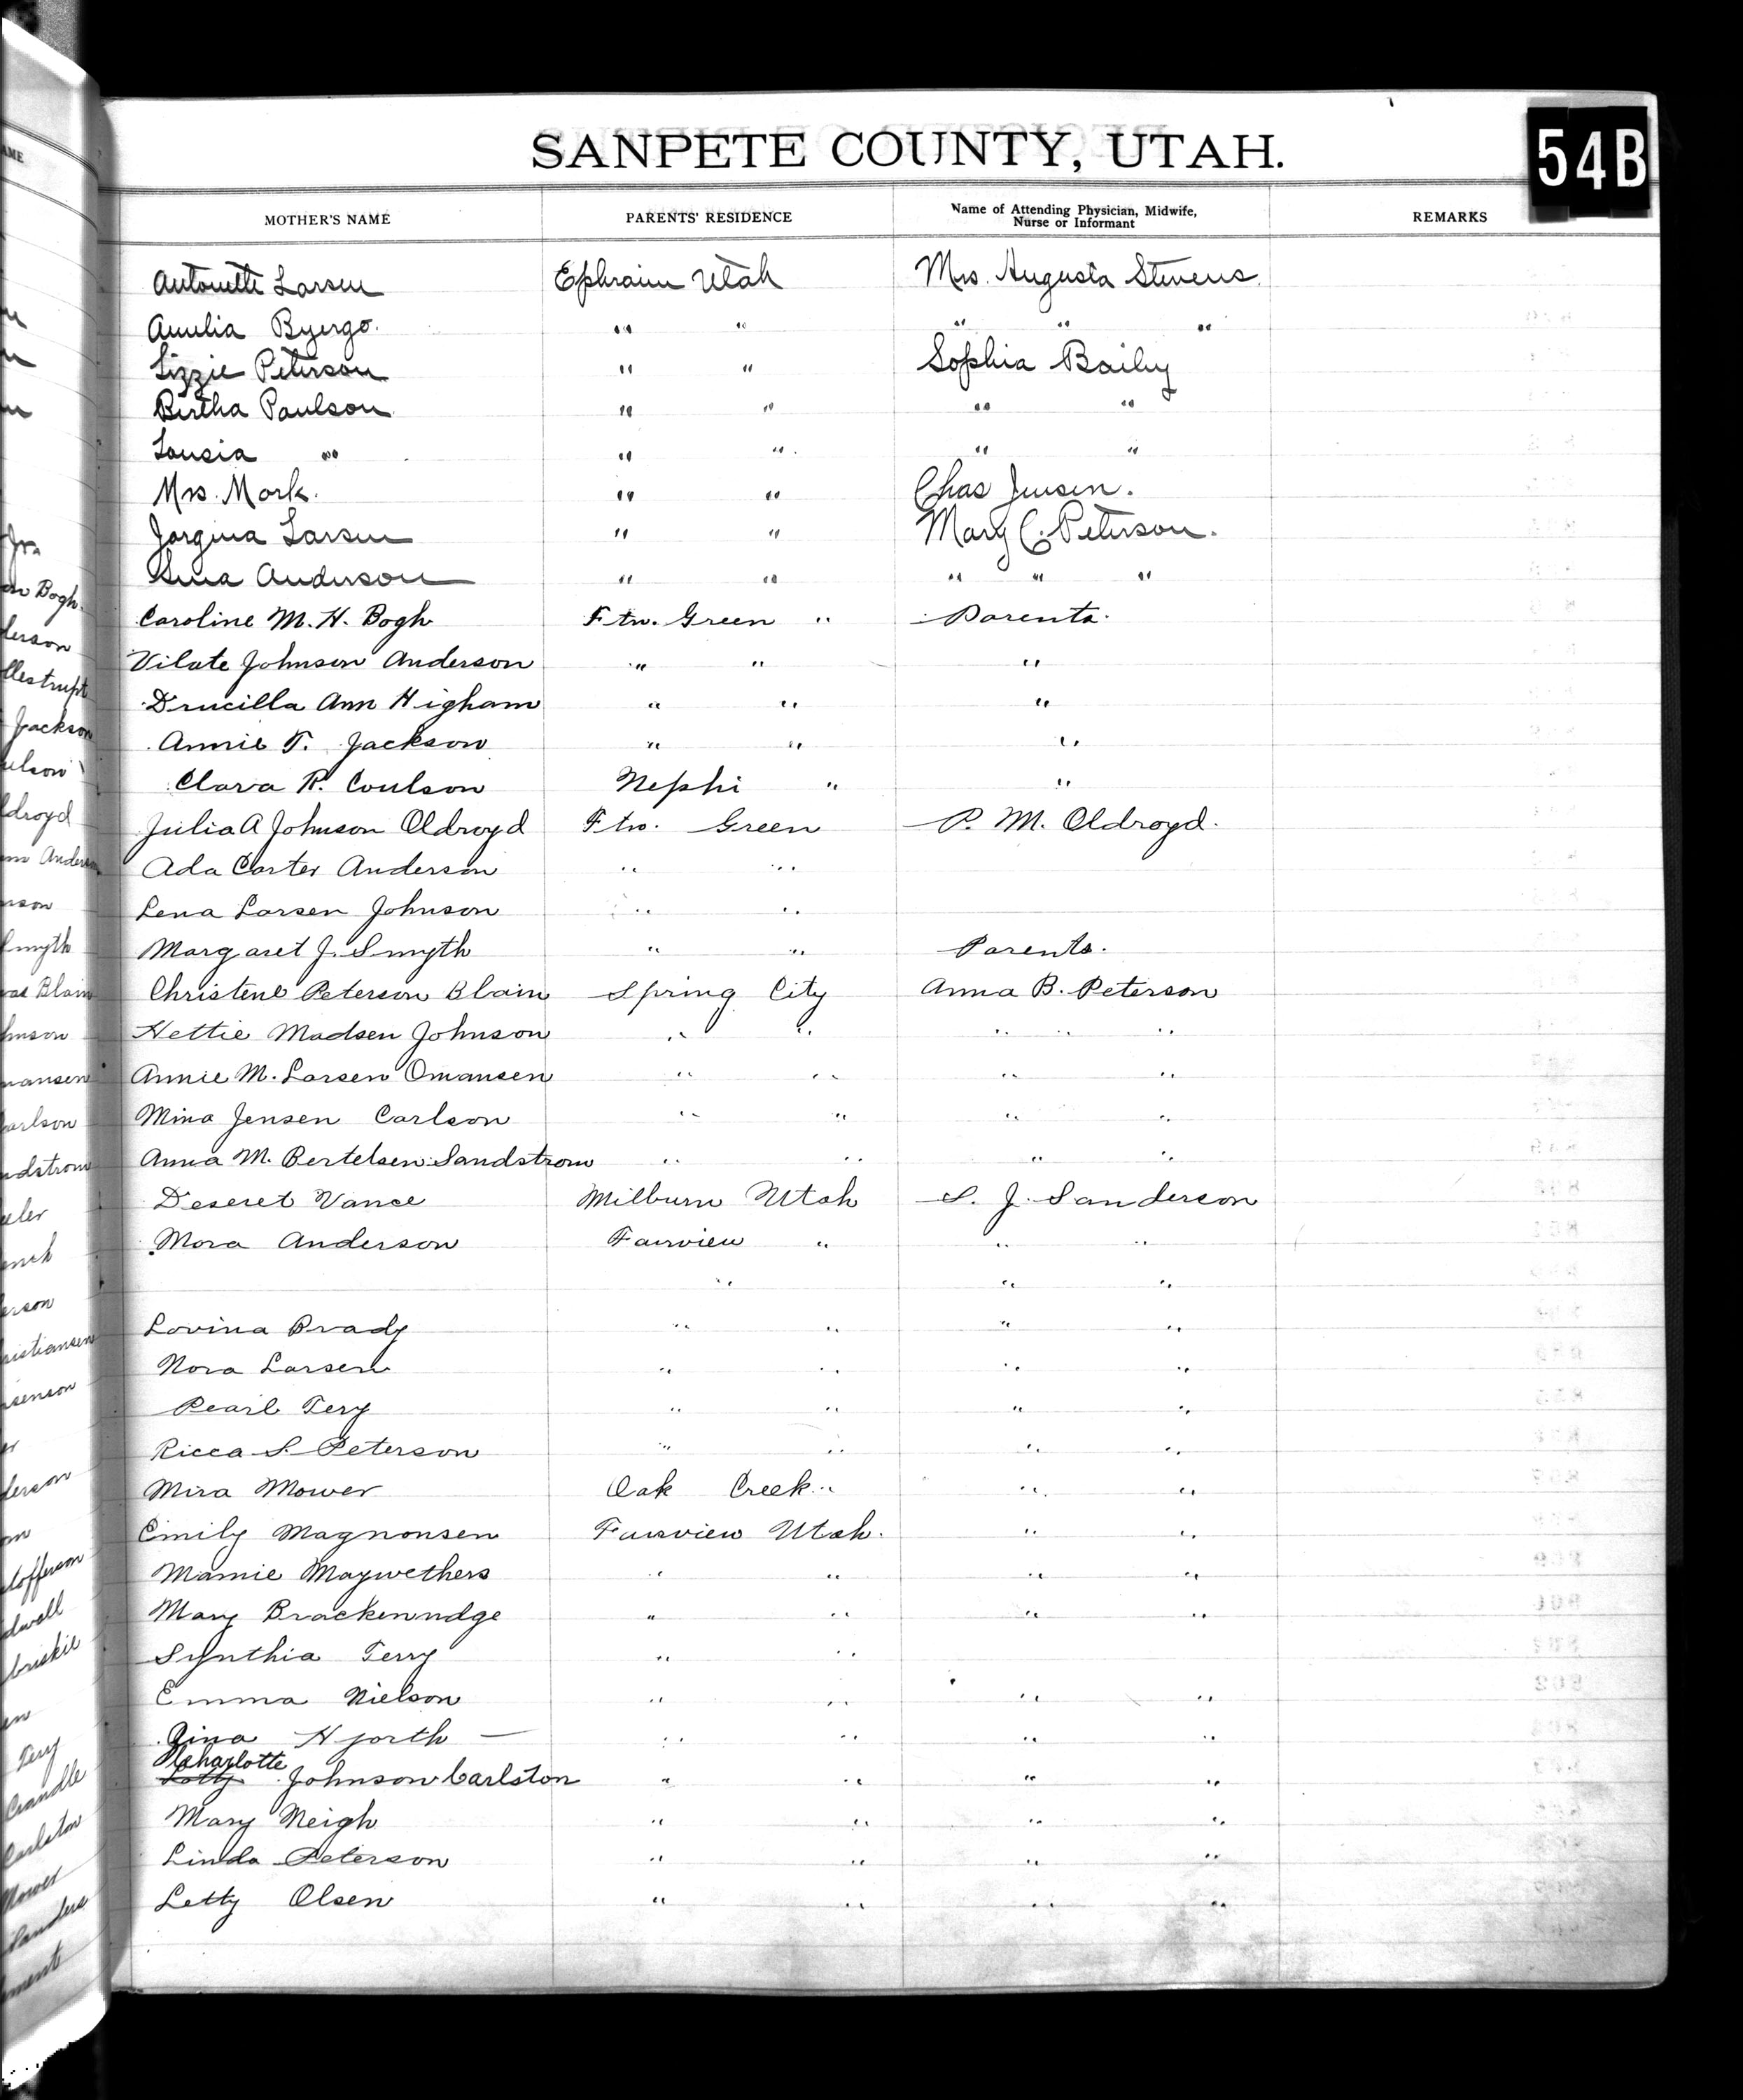 54B
SANPETE COUNTY, UTAH.
MOTHER'S NAME PARENTS' RESIDENCE Name of Attending Physician, Midwife, Nurse or Informant REMARKS
Antonette Larsen Ephraim Utah Mrs. Augusta Stevens
Amelia Byergo. " " " " "
Lizzie Peterson " " Sophia Baily
Bertha Paulson " " " "
Lousia " " " " "
Mrs. Mork. " " Chas Jensen.
Jorgina Larsen " " Mary C. Peterson.
Anderson " " " " "
Caroline M. H. Bogh Ftn. Green " Parents.
Vilate Johnson Anderson " " "
Drucilla Ann Higham " " "
Annie T. Jackson " " "
Clara R. Coulson Nephi " "
Julia A Johnson Oldroyd Ftn. Green P. M. Oldroyd.
Ada Carter Anderson " "
Lena Larsen Johnson " "
Margaret J. Smyth " " Parents.
Christene Peterson Blain Spring City Anna B. Peterson
Hettie Madsen Johnson " " " " "
Annie M. Larsen Omansen " " " "
Mina Jensen Carlson " " " "
Anna M. Bertelsen Sandstrom " " " "
Deseret Vance Milburn Utah S. J. Sanderson
Mora Anderson Fairview " " "
" " "
Lovina Brady " " " "
Nora Larsen " " " "
Pearl Tery " " " "
Ricca S. Peterson " " " "
Mira Mower Oak Creek " " "
Emily Magnonsen Fairview Utah. " "
Mamie Maywethers " " " "
Mary Brackenridge " " " "
Synthia Terry " "
Emma Nielson " " " "
Hjorth " " " "
Charlotte
Johnson Carlston " " " "
Mary Neigh " " " "
Linda Peterson " " " "
Letty Olsen " " " "